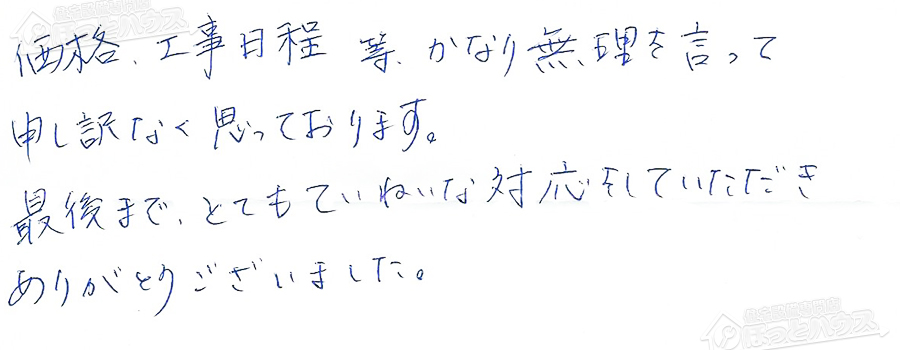 価格、工事日程 等、かなり無理を言って
申し訳なく思っております。
最後まで、とてもていねいな対応をしていただき
ありがとうございました。
住宅設備専門館
ほっとハウス